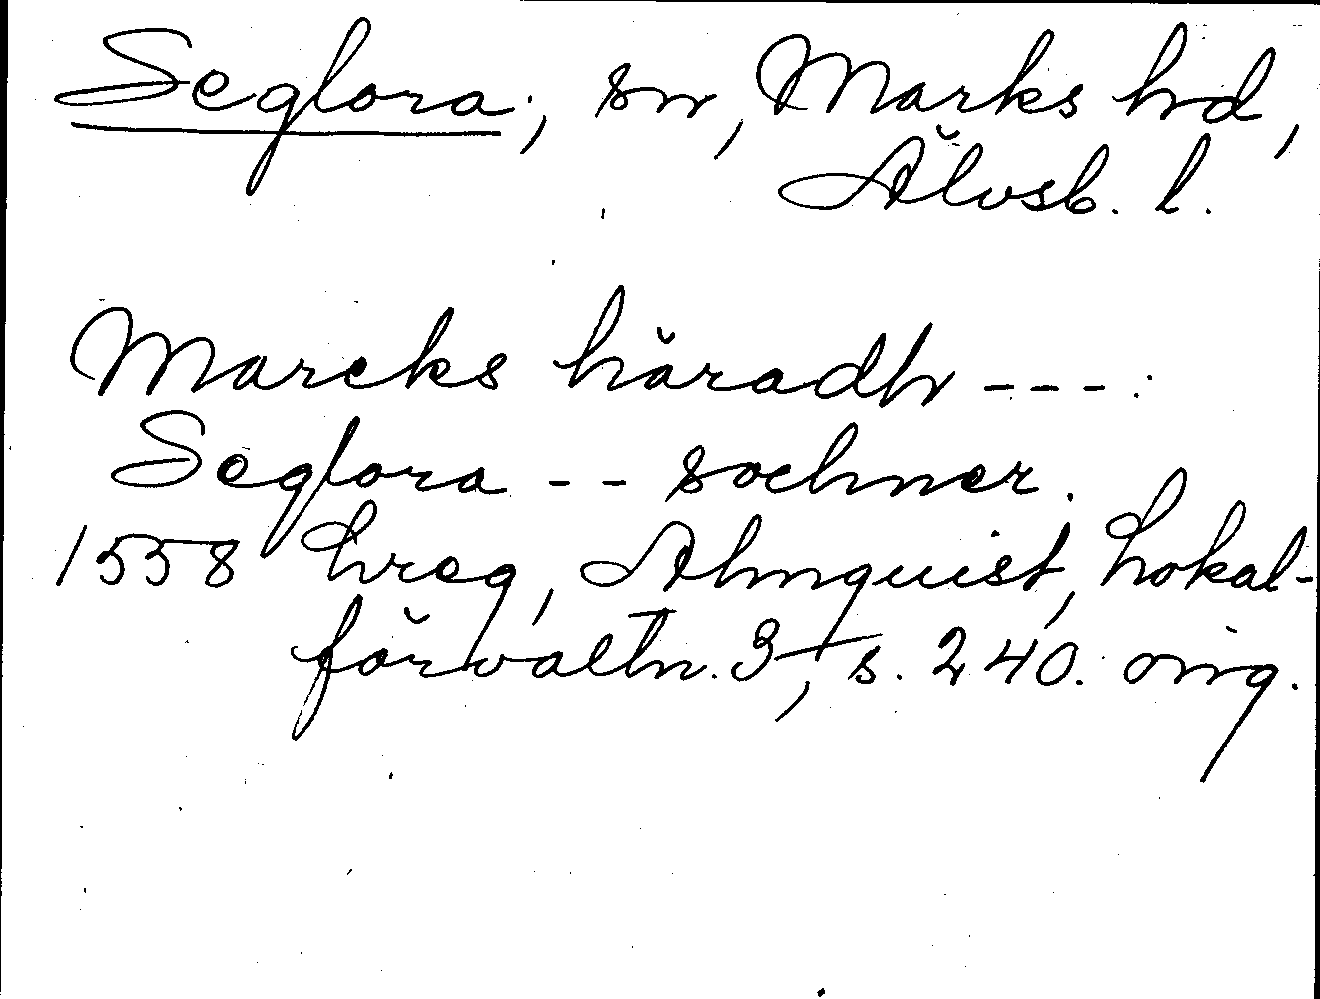 Seglora, sn, Marks hd,
Älvsb. l.
Marcks häradh ---:
Seglora -- sochner.
1558 Lreg, Almquist, Lokal-
förvaltn. 3, s. 240. orig.